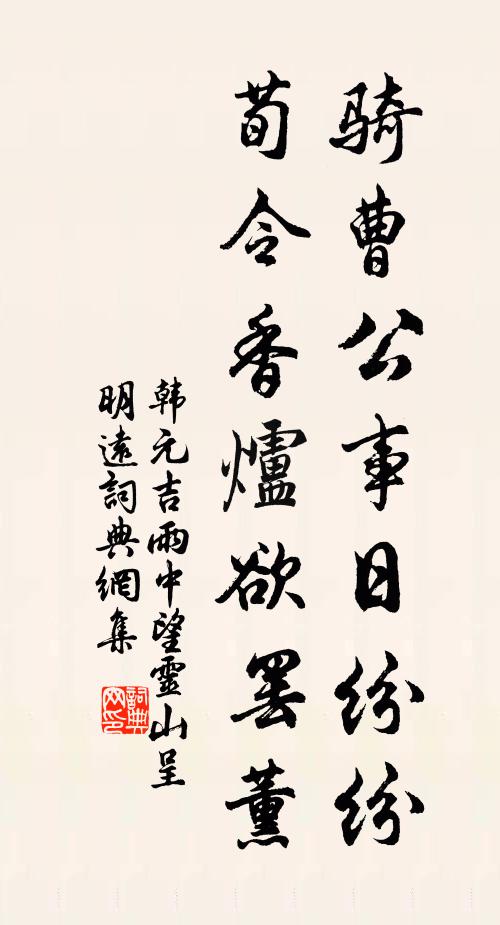 骑曹公事日纷纷
荀令香爐欲罢薰
韩元吉雨中望靈山呈
明遠詞典網集
詞典
网印